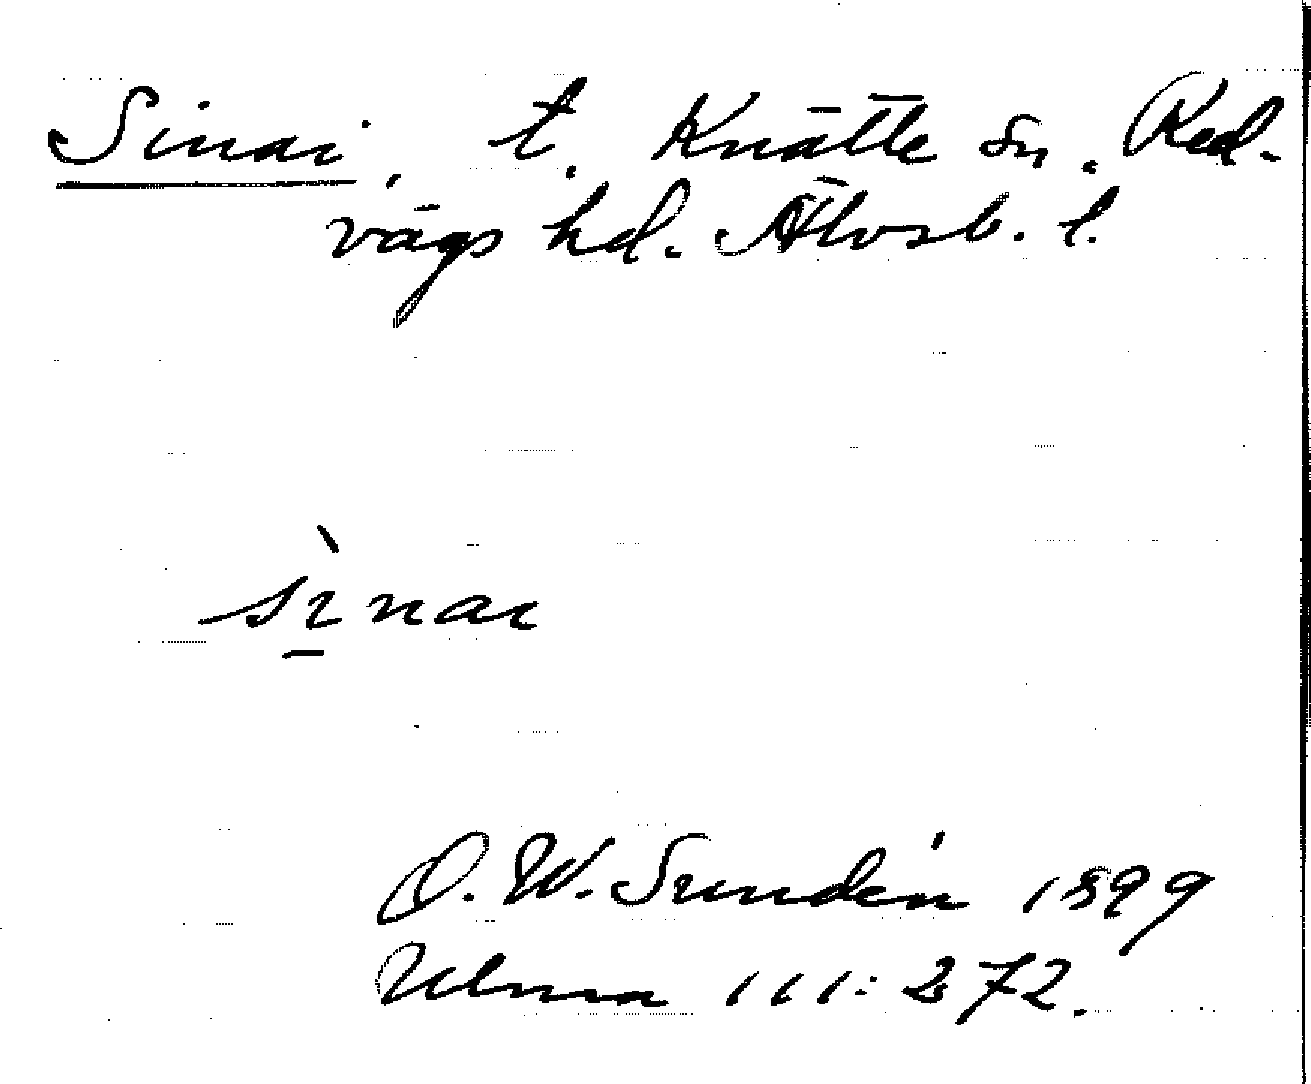 Sinai, t. Knätte sn. Red-
vägs hd. Älvsb. l.
sìnai
O. W. Sundén 1899
Ulma 111:272.